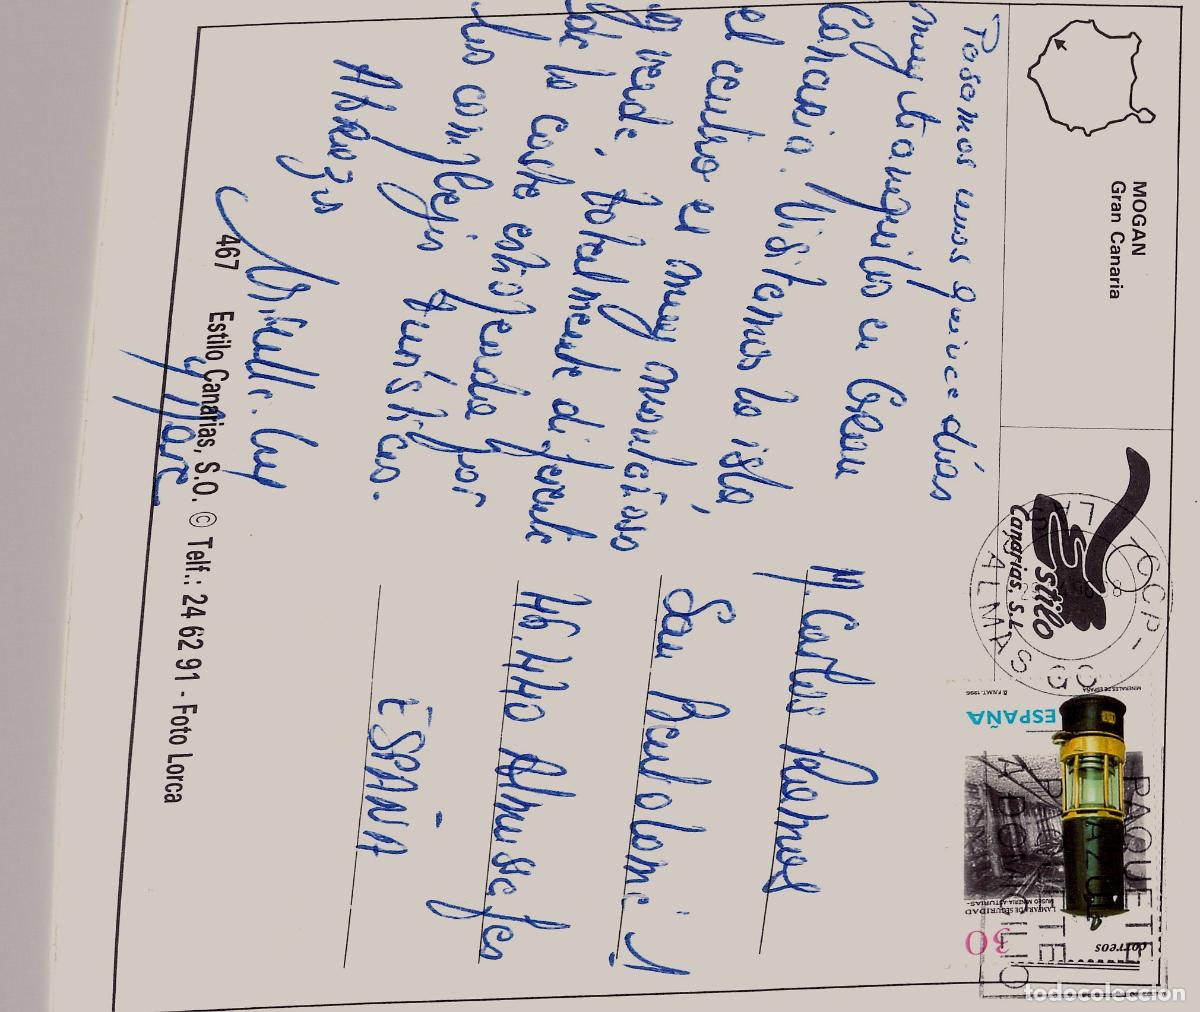 MOGAN
Gran Canaria
Pasamos unos quince días
muy tranquilos en Gran
Canaria. Visitamos la isla,
el centro es muy montañoso
y verde, totalmente diferente
de la costa estropeada por
los complejos turísticos.
Abrazos
y Marc
467 Estilo Canarias, S.O. © Telf.: 24 62 91 - Foto Lorca
Estilo
Canarias, S.L.
LAS PALMAS
M. Carlos Ramos
San Bartolomé 1
46.440 Almussafes
ESPAÑA
MINERALES DE ESPAÑA
F.N.M.T. 1996
ESPAÑA
LAMPARA DE SEGURIDAD
MUSEO MINERIA ASTURIAS
30
correos
PAQUETE
AZUL
PAQUETE
A DOMICILIO
todocoleccion